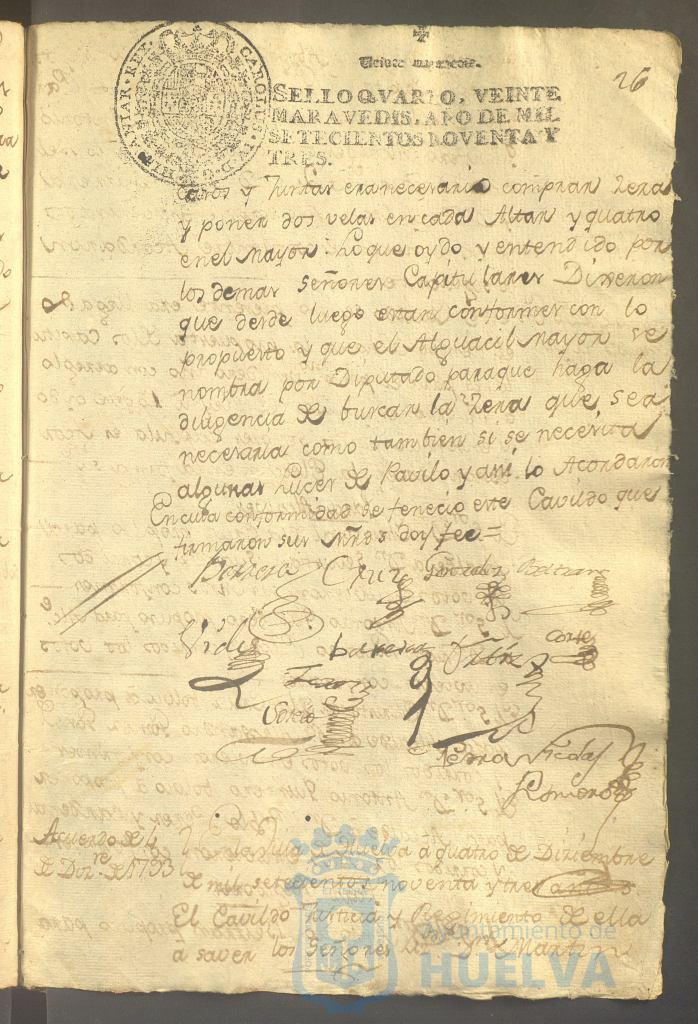 26
Veinte maravedis.
SELLO QVARTO, VEINTE
MARAVEDIS, AÑO DE MIL
SETECIENTOS NOVENTA Y
TRES.
CAROLUS IV D G HISPANIAR REX
y Juntar era necesario comprar zera
y poner dos velas en cada Altar y quatro
en el mayor: lo que oydo y entendido por
los demas señores Capitulares Dixeron
que desde luego eran conformes con lo
propuesto y que el Alguacil mayor se
nombra por Diputado para que haga la
diligencia de buscar la zera que sea
necesaria como tambien si se necesita
algunas luces de Pavilo y asi lo Acordaron
En cuia conformidad se fenecio este Cavildo que
firmaron sus mrds doy fee=
Barrera Cruz Gonzalez Beltran
Vides barera Ortiz Cortes
Romero
Acuerdo de 4
de Dizre de 1793
Huelva á quatro de Diziembre
de mil setecientos noventa y tres años
El Cavildo Justicia y Regimiento de ella
á saver los Señores Martin
Ayuntamiento de
HUELVA